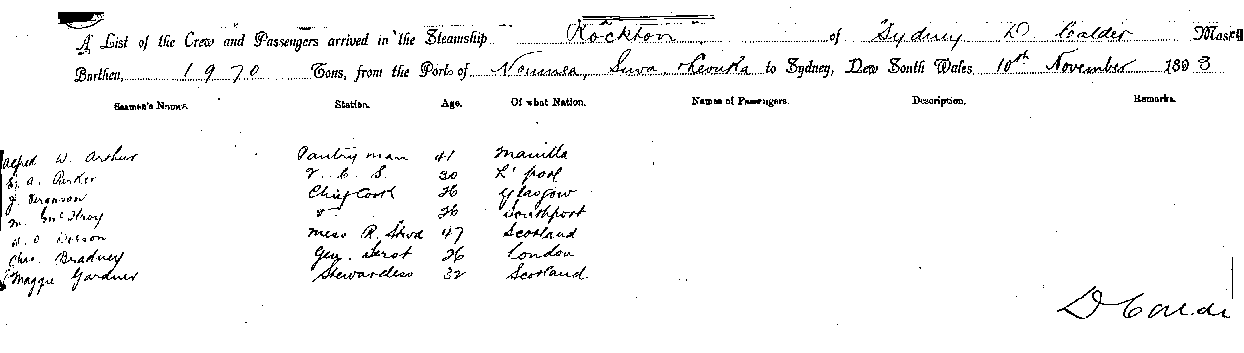 A List of the Crew and Passengers arrived in the Steamship "Rockton" of Sydney D Calder Master
Burthen, 1970 Tons, from the Ports of Noumea, Suva, Levuka to Sydney, New South Wales 10th November 1893
Seamen's Names. Station. Age. Of what Nation. Names of Passengers. Description. Remarks.
Alfred W. Arthur Pantry man 41 Manilla
A. Parker 2. C. S. 30 L'pool
J. Ferguson Chief Cook 26 Glasgow
M. 26 Southport
Mess R. Stwd 47 Scotland
Chas. Bradney Gen. Servt 26 London
Maggie Gardner Stewardess 32 Scotland
D Calder